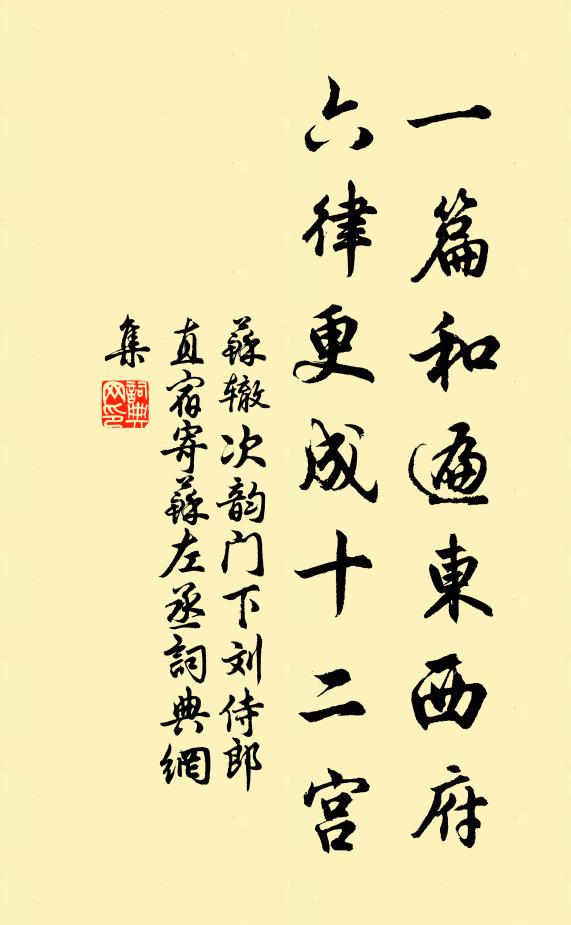 一篇和遍東西府
六律更成十二宫
蘇辙次韵门下刘侍郎
直宿寄蘇左丞詞典網
集
詞典网印